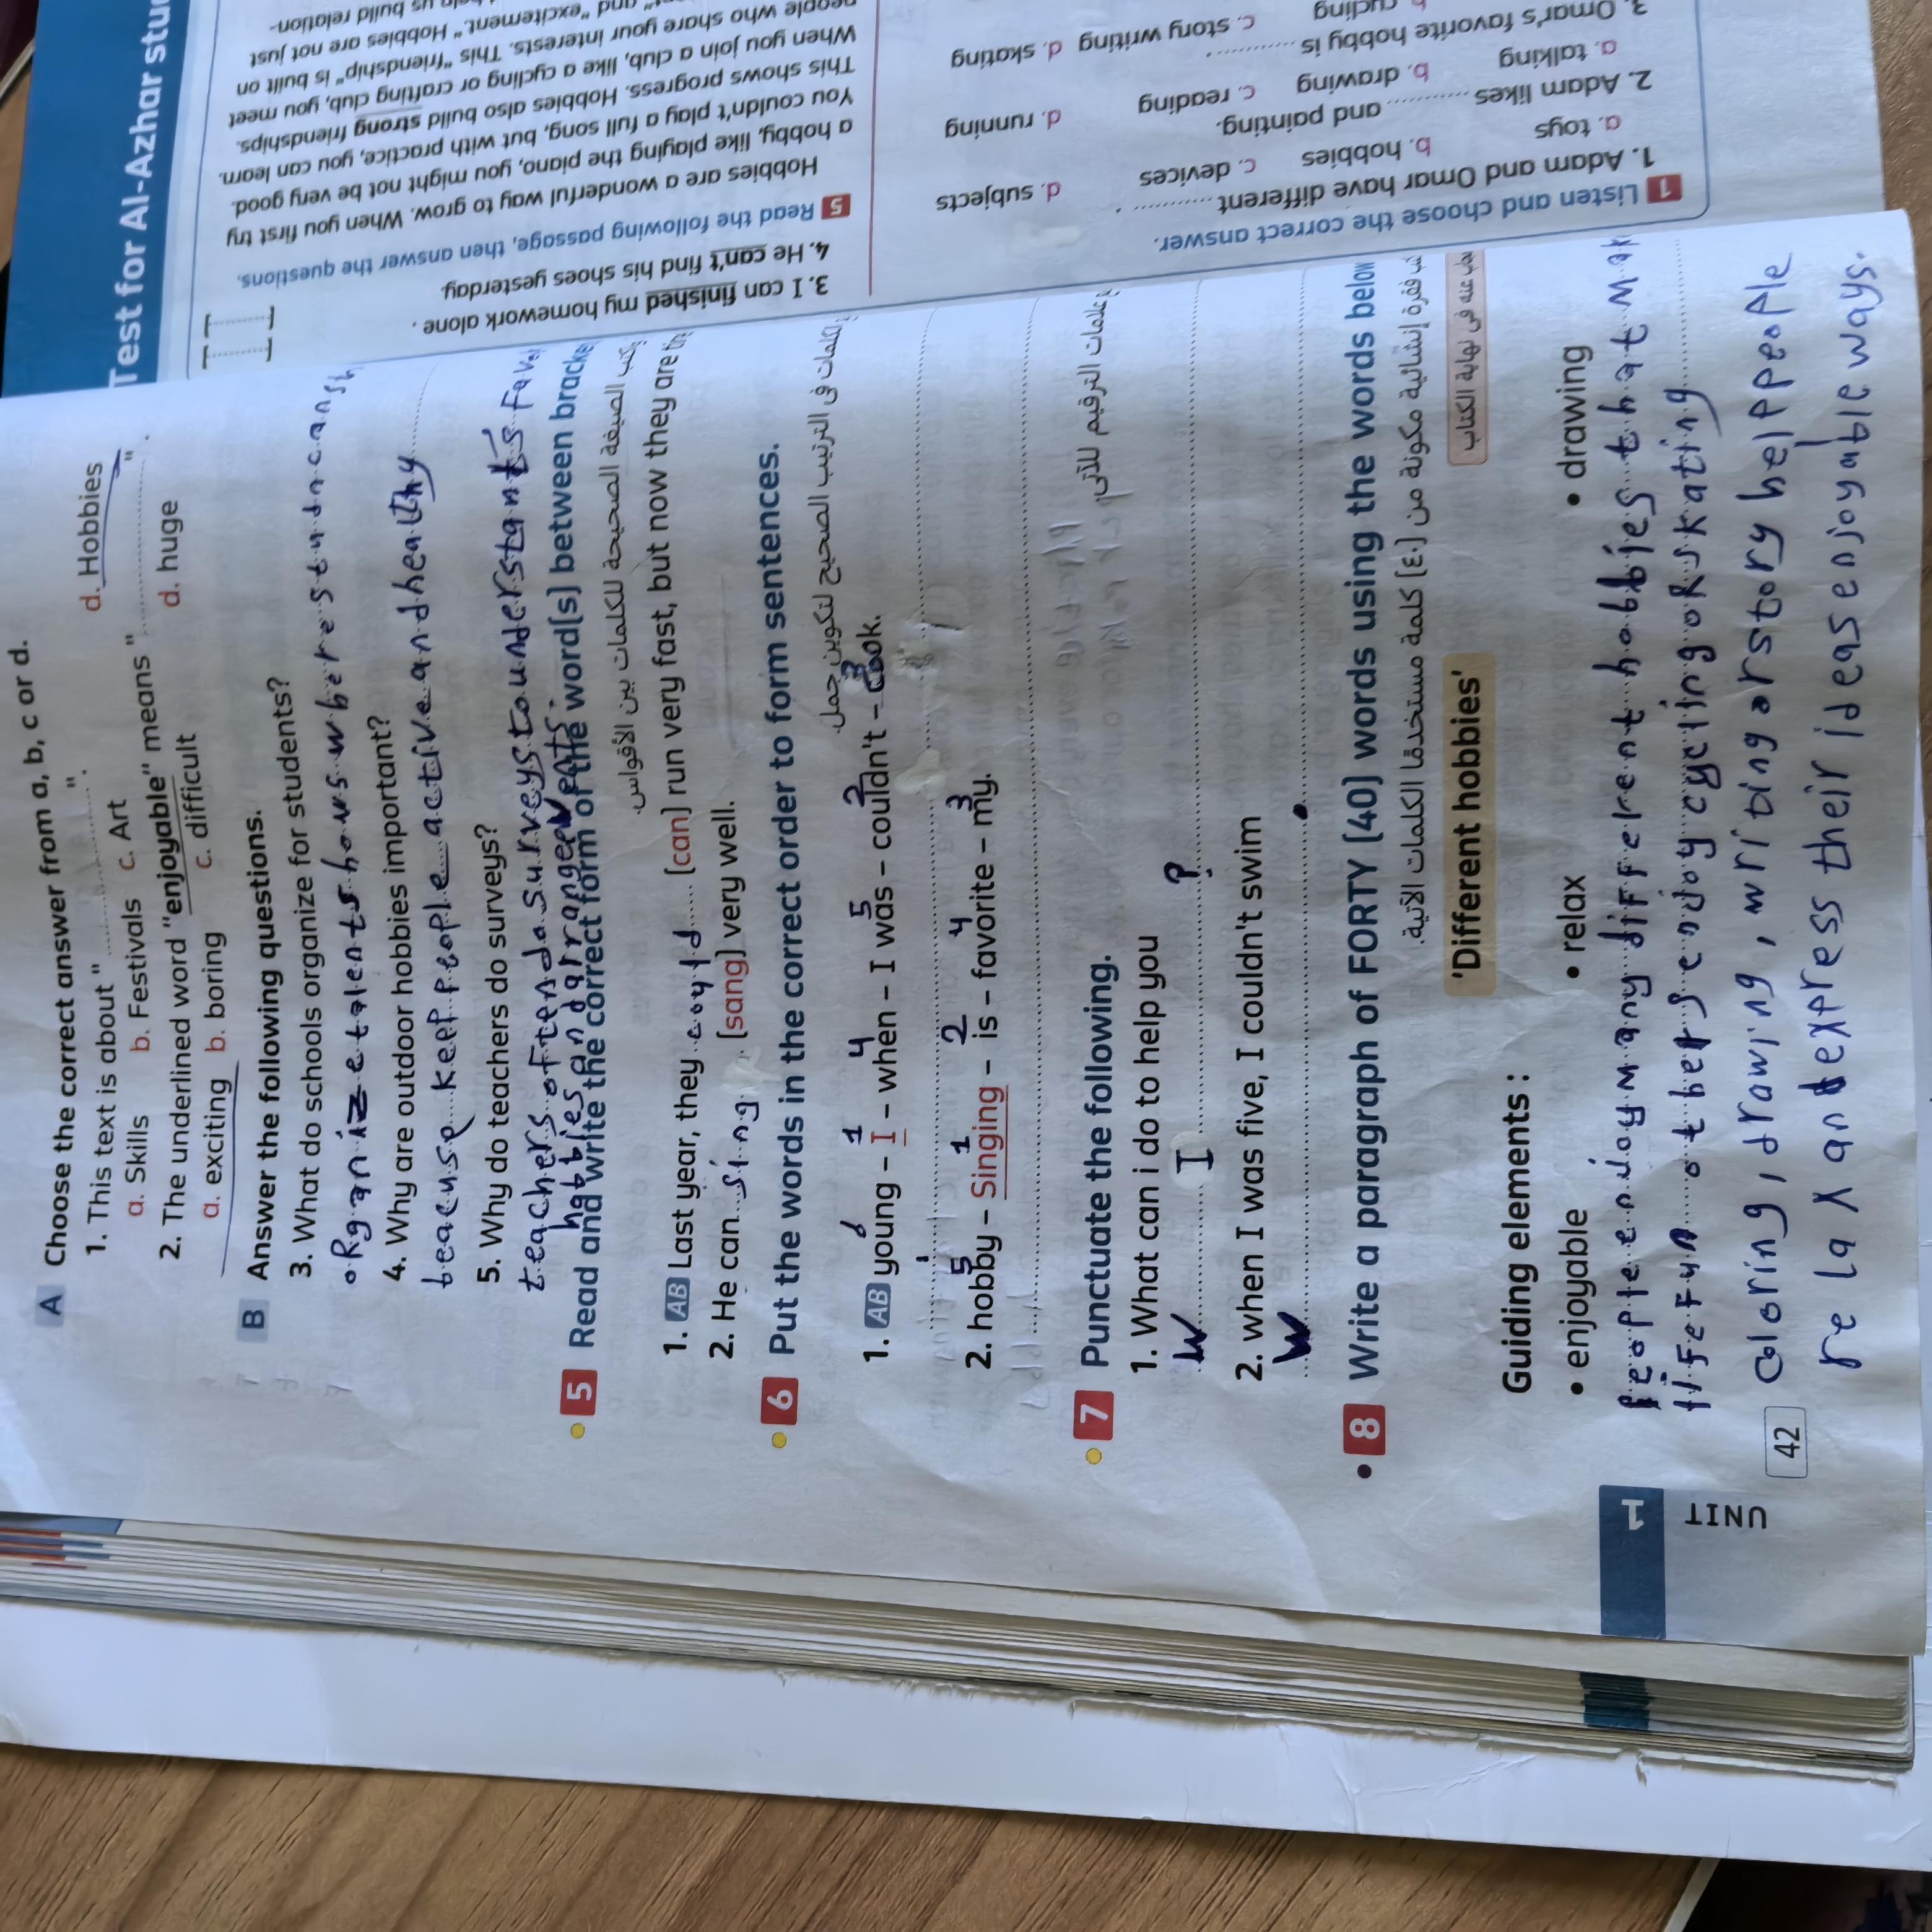 A Choose the correct answer from a, b, c or d.
1. This text is about "...............".
a. Skills b. Festivals c. Art d. Hobbies
2. The underlined word "enjoyable" means "...............".
a. exciting b. boring c. difficult d. huge
B Answer the following questions.
3. What do schools organize for students?
organize talent shows where students can sh
4. Why are outdoor hobbies important?
because keep people active and healthy
5. Why do teachers do surveys?
teachers often do surveys to understant's Fav
hobbies and arrange events.
5 Read and write the correct form of the word(s) between bracke
اكتب الصيغة الصحيحة للكلمات بين الأقواس.
1. AB Last year, they could (can) run very fast, but now they are
2. He can sing (sang) very well.
6 Put the words in the correct order to form sentences.
الكلمات فى الترتيب الصحيح لتكوين جمل.
6 1 4 5 2 3
1. AB young – I – when – I was – couldn't – cook.
5 1 2 4 3
2. hobby – Singing – is – favorite – my.
7 Punctuate the following.
علامات الترقيم للآتى.
1. What can i do to help you
W I ?
2. when I was five, I couldn't swim
W .
8 Write a paragraph of FORTY (40) words using the words below
فقرة إنشائية مكونة من (٤٠) كلمة مستخدمًا الكلمات الآتية.
'Different hobbies'
عنه فى نهاية الكتاب
Guiding elements :
• enjoyable • relax • drawing
People enjoy many diFFerent hobbies that mak
liFe Fun others enjoy cycling or skating
coloring, drawing, writing or story help people
relax and express their ideas enjoyable ways.
42
UNIT 1
Test for Al-Azhar stu
3. I can finished my homework alone.
4. He can't find his shoes yesterday.
5 Read the following passage, then answer the questions.
Hobbies are a wonderful way to grow. When you first try
a hobby, like playing the piano, you might not be very good.
You couldn't play a full song, but with practice, you can learn.
This shows progress. Hobbies also build strong friendships.
When you join a club, like a cycling or crafting club, you meet
people who share your interests. This "friendship" is built on
and "excitement." Hobbies are not just
us build relation-
1 Listen and choose the correct answer.
1. Adam and Omar have different ............ .
a. toys b. hobbies c. devices d. subjects
2. Adam likes ............ and painting.
a. talking b. drawing c. reading d. running
3. Omar's favorite hobby is ............ .
cycling c. story writing d. skating